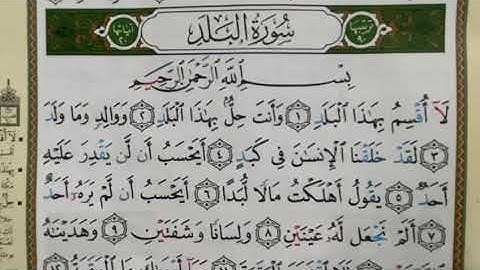 سُورَةُ الْبَلَدِ
بِسْمِ اللَّهِ الرَّحْمَٰنِ الرَّحِيمِ
لَآ أُقْسِمُ بِهَٰذَا الْبَلَدِ ١ وَأَنتَ حِلٌّۢ بِهَٰذَا الْبَلَدِ ٢ وَوَالِدٍ وَمَا وَلَدَ
٣ لَقَدْ خَلَقْنَا الْإِنسَٰنَ فِى كَبَدٍ ٤ أَيَحْسَبُ أَن لَّن يَقْدِرَ عَلَيْهِ
أَحَدٌ ٥ يَقُولُ أَهْلَكْتُ مَالًا لُّبَدًا ٦ أَيَحْسَبُ أَن لَّمْ يَرَهُۥٓ أَحَدٌ
٧ أَلَمْ نَجْعَل لَّهُۥ عَيْنَيْنِ ٨ وَلِسَانًا وَشَفَتَيْنِ ٩ وَهَدَيْنَٰهُ